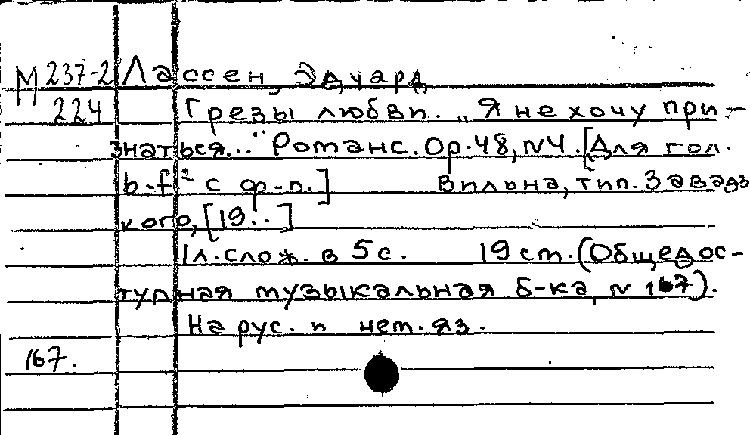 М 237-2 Лассен, Эдуард
224 Грезы любви. „Я не хочу при-
знаться..." Романс. Op. 48, N 4. [Для гол.
b-f² с ф-п.] Вильна, тип. Завадз
кого, [19..]
1 л. слож. в 5 с. 19 ст. (Общедос-
тупная музыкальная б-ка, N 167).
На рус. и нем. яз.
167.